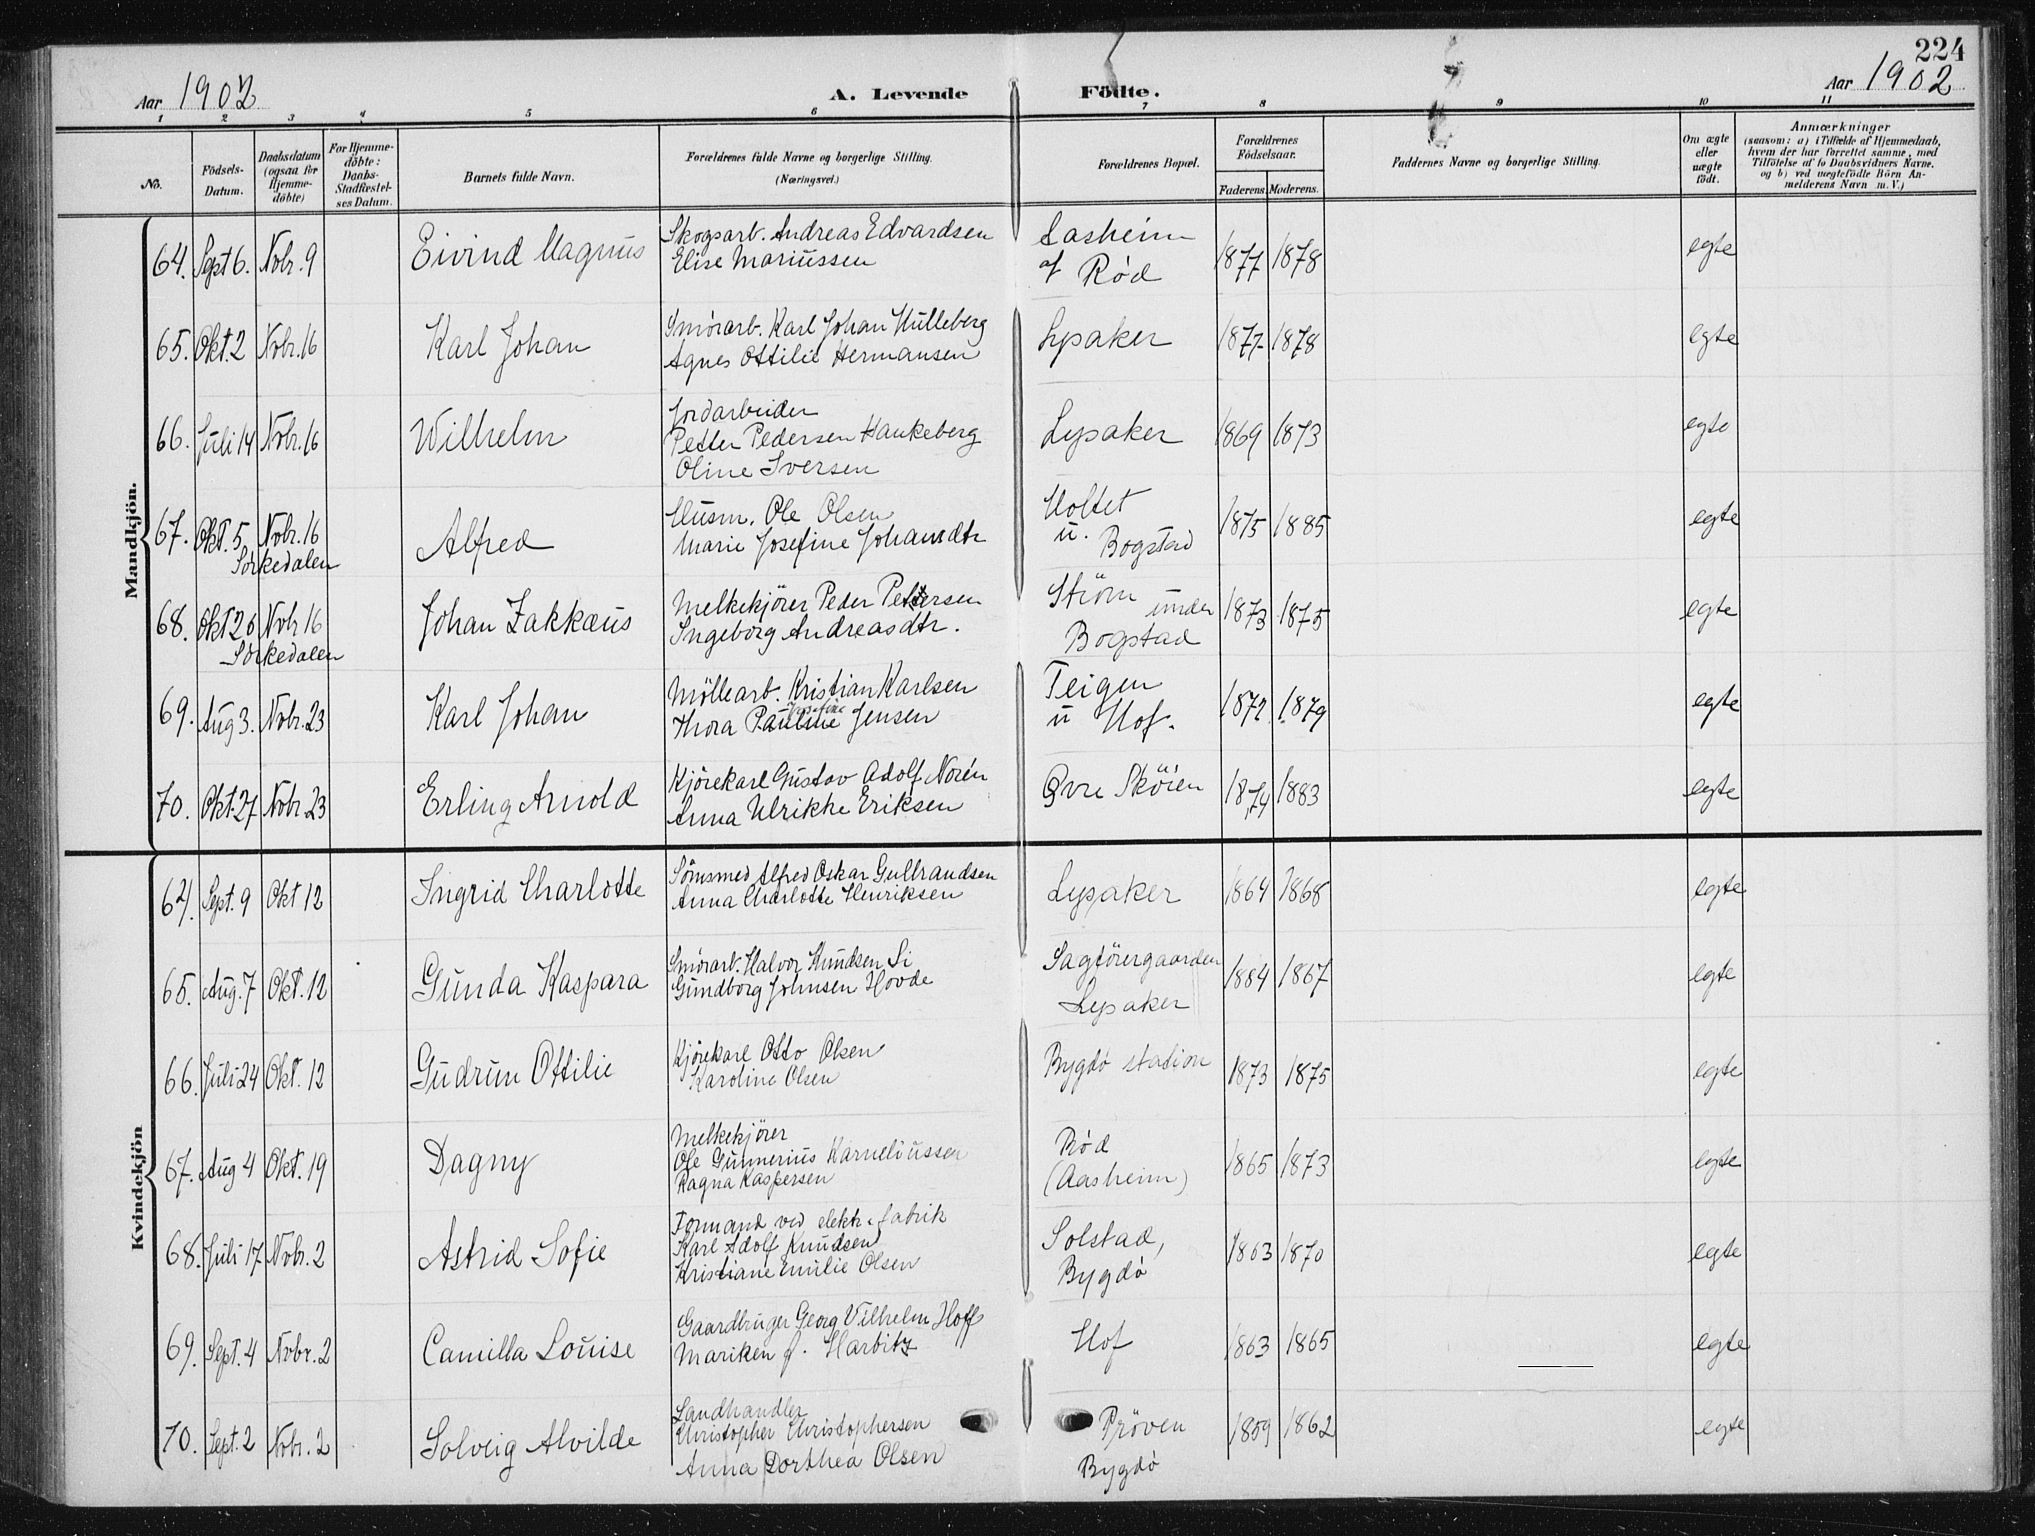 224
Aar 1902 A. Levende Födte. Aar 1902
1 2 3 4 5 6 7 8 9 10 11
No.
Födsels-
Datum.
Daabsdatum
(ogsaa for
Hjemme-
döbte)
For Hjemme-
döbte:
Daabs-
Stadfæstel-
ses Datum.
Barnets fulde Navn.
Forældrenes fulde Navne og borgerlige Stilling.
(Næringsvei.)
Forældrenes Bopæl.
Forældrenes
Födselsaar.
Faderens. Moderens.
Faddernes Navne og borgerlige Stilling.
Om ægte
eller
uægte
födt.
Anmærkninger
(saasom: a) i Tilfælde af Hjemmedaab,
hvem der har forrettet samme, med
Tilföielse af to Daabsvidners Navne,
og b) ved uægtefödte Börn An-
melderens Navn m. V.)
Mandkjön.
64. Sept 6. Nobr. 9 Eivind Magnus
Skogsarb. Andreas Edvardsen
Elise Mariussen
Aasheim
af Röd
1877 1878 egte
65. Okt. 2 Nobr. 16 Karl Johan
Smörarb. Karl Johan Hulleberg
Agnes Ottilie Hermansen
Lysaker 1877 1878 egte
66. Juli 14 Nobr. 16 Wilhelm
Jordarbeider
Petter Pedersen Haukeberg
Oline Iversen
Lysaker 1869 1873 egte
67. Okt. 5 Nobr. 16
Sörkedalen
Alfred
Husm. Ole Olsen
Marie Josefine Johansdtr
Holtet
u. Bogstad
1875 1885 egte
68. Okt 26 Nobr 16
Sörkedalen
Johan Zakkæus
Melkekjörer Peder Pettersen
Ingeborg Andreasdtr.
Ström under
Bogstad
1873 1875 egte
69. Aug 3. Nobr. 23 Karl Johan
Möllearb. Kristian Karlsen
Josefine
Thora Pauline Jensen
Teigen
u Hof.
1872 1879 egte
70. Okt. 27 Nobr. 23 Erling Arnold
Kjörekarl Gustav Adolf Norén
Anna Ulrikke Eriksen
Övre Sköien 1874 1883 egte
Kvindekjön
64. Sept. 9 Okt 12 Ingrid Charlotte
Sömsmed Alfred Oskar Gulbrandsen
Anna Charlotte Henriksen
Lysaker 1864 1868 egte
65. Aug. 7 Okt. 12 Gunda Kaspara
Smörarb. Halvor Knudsen Li
Gundborg Johnsen Hovde
Sagförergaarden
Lysaker
1864 1867 egte
66. Juli 24 Okt. 12 Gudrun Ottilie
Kjörekarl Otto Olsen
Karoline Olsen
Bygdö station 1873 1875 egte
67. Aug 4 Okt. 19 Dagny
Melkekjörer
Ole Gunnerius Karneliussen
Ragna Kaspersen
Röd
(Aasheim)
1865 1873 egte
68. Juli 17 Nobr. 2 Astrid Sofie
Formand ved elektr. fabrik
Karl Adolf Knudsen
Kristiane Emilie Olsen
Solstad,
Bygdö
1863 1870 egte
69. Sept. 4 Nobr. 2 Camilla Louise
Gaardbruger Georg Vilhelm Hoff
Mariken f. Harbitz
Hof 1863 1865 egte
70. Sept. 2 Nobr. 2 Solveig Alvilde
Landhandler
Christopher Christophersen
Anna Dorthea Olsen
Pröven
Bygdö
1859 1862 egte